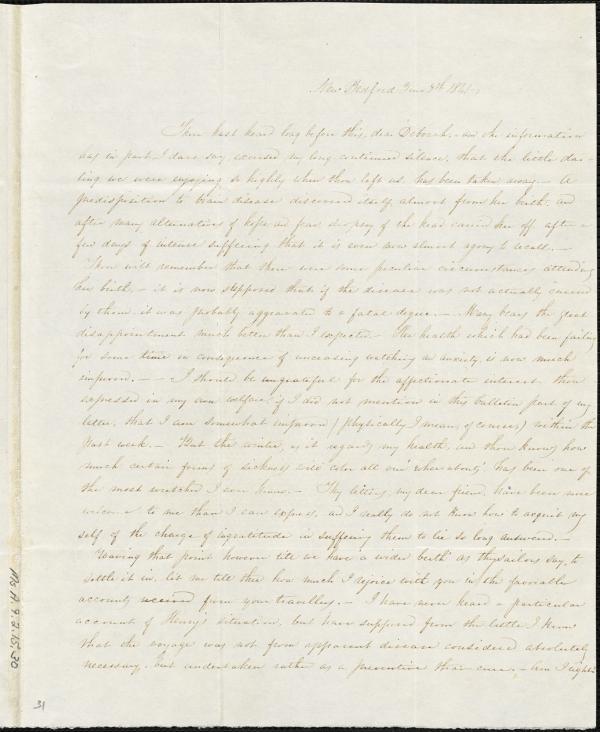 New Bedford June 8th 1841.
Thou hast heard long before this, dear Deborah, and the information
has in part, I dare say, excused my long continued silence, that the little dar-
ling we were enjoying so highly when thou left us, has been taken away. - A
predisposition to brain disease discovered itself almost from her birth, and
after many alternatives of hope and fear dropsy of the head carried her off after a
few days of intense suffering that it is even now almost agony to recall. -
Thou wilt remember that there were some peculiar circumstances attending
her birth, - it is now supposed that if the disease was not actually caused
by them, it was probably aggravated to a fatal degree. - Mary bears the great
disappointment much better than I expected. Her health which had been failing
for some time in consequence of unceasing watching and anxiety, is now much
improved. - - I should be ungrateful for the affectionate interest thou
expressed in my own welfare, if I did not mention in this bulletin part of my
letter, that I am somewhat improved (physically I mean, of course,) within the
past week. - But the winter, as it regards my health, and thou knows how
much certain forms of sickness will color all one's whereabouts, has been one of
the most wretched I ever knew. - Thy letters, my dear friend, have been more
welcome to me than I can express, and I really do not know how to acquit my
self of the charge of ingratitude in suffering them to lie so long answered. -
Leaving that point however till we have a wider berth as thy sailors say, to
settle it in, let me tell thee how much I rejoice with you in the favorable
accounts received from your travellers. - I have never heard a particular
account of Henry's situation, but have supposed from the little I knew
that the voyage was not from apparent disease considered absolutely
necessary, but undertaken rather as a preventive than cure, - Am I right?
Ms. A. 9. 2. 15. 30
31